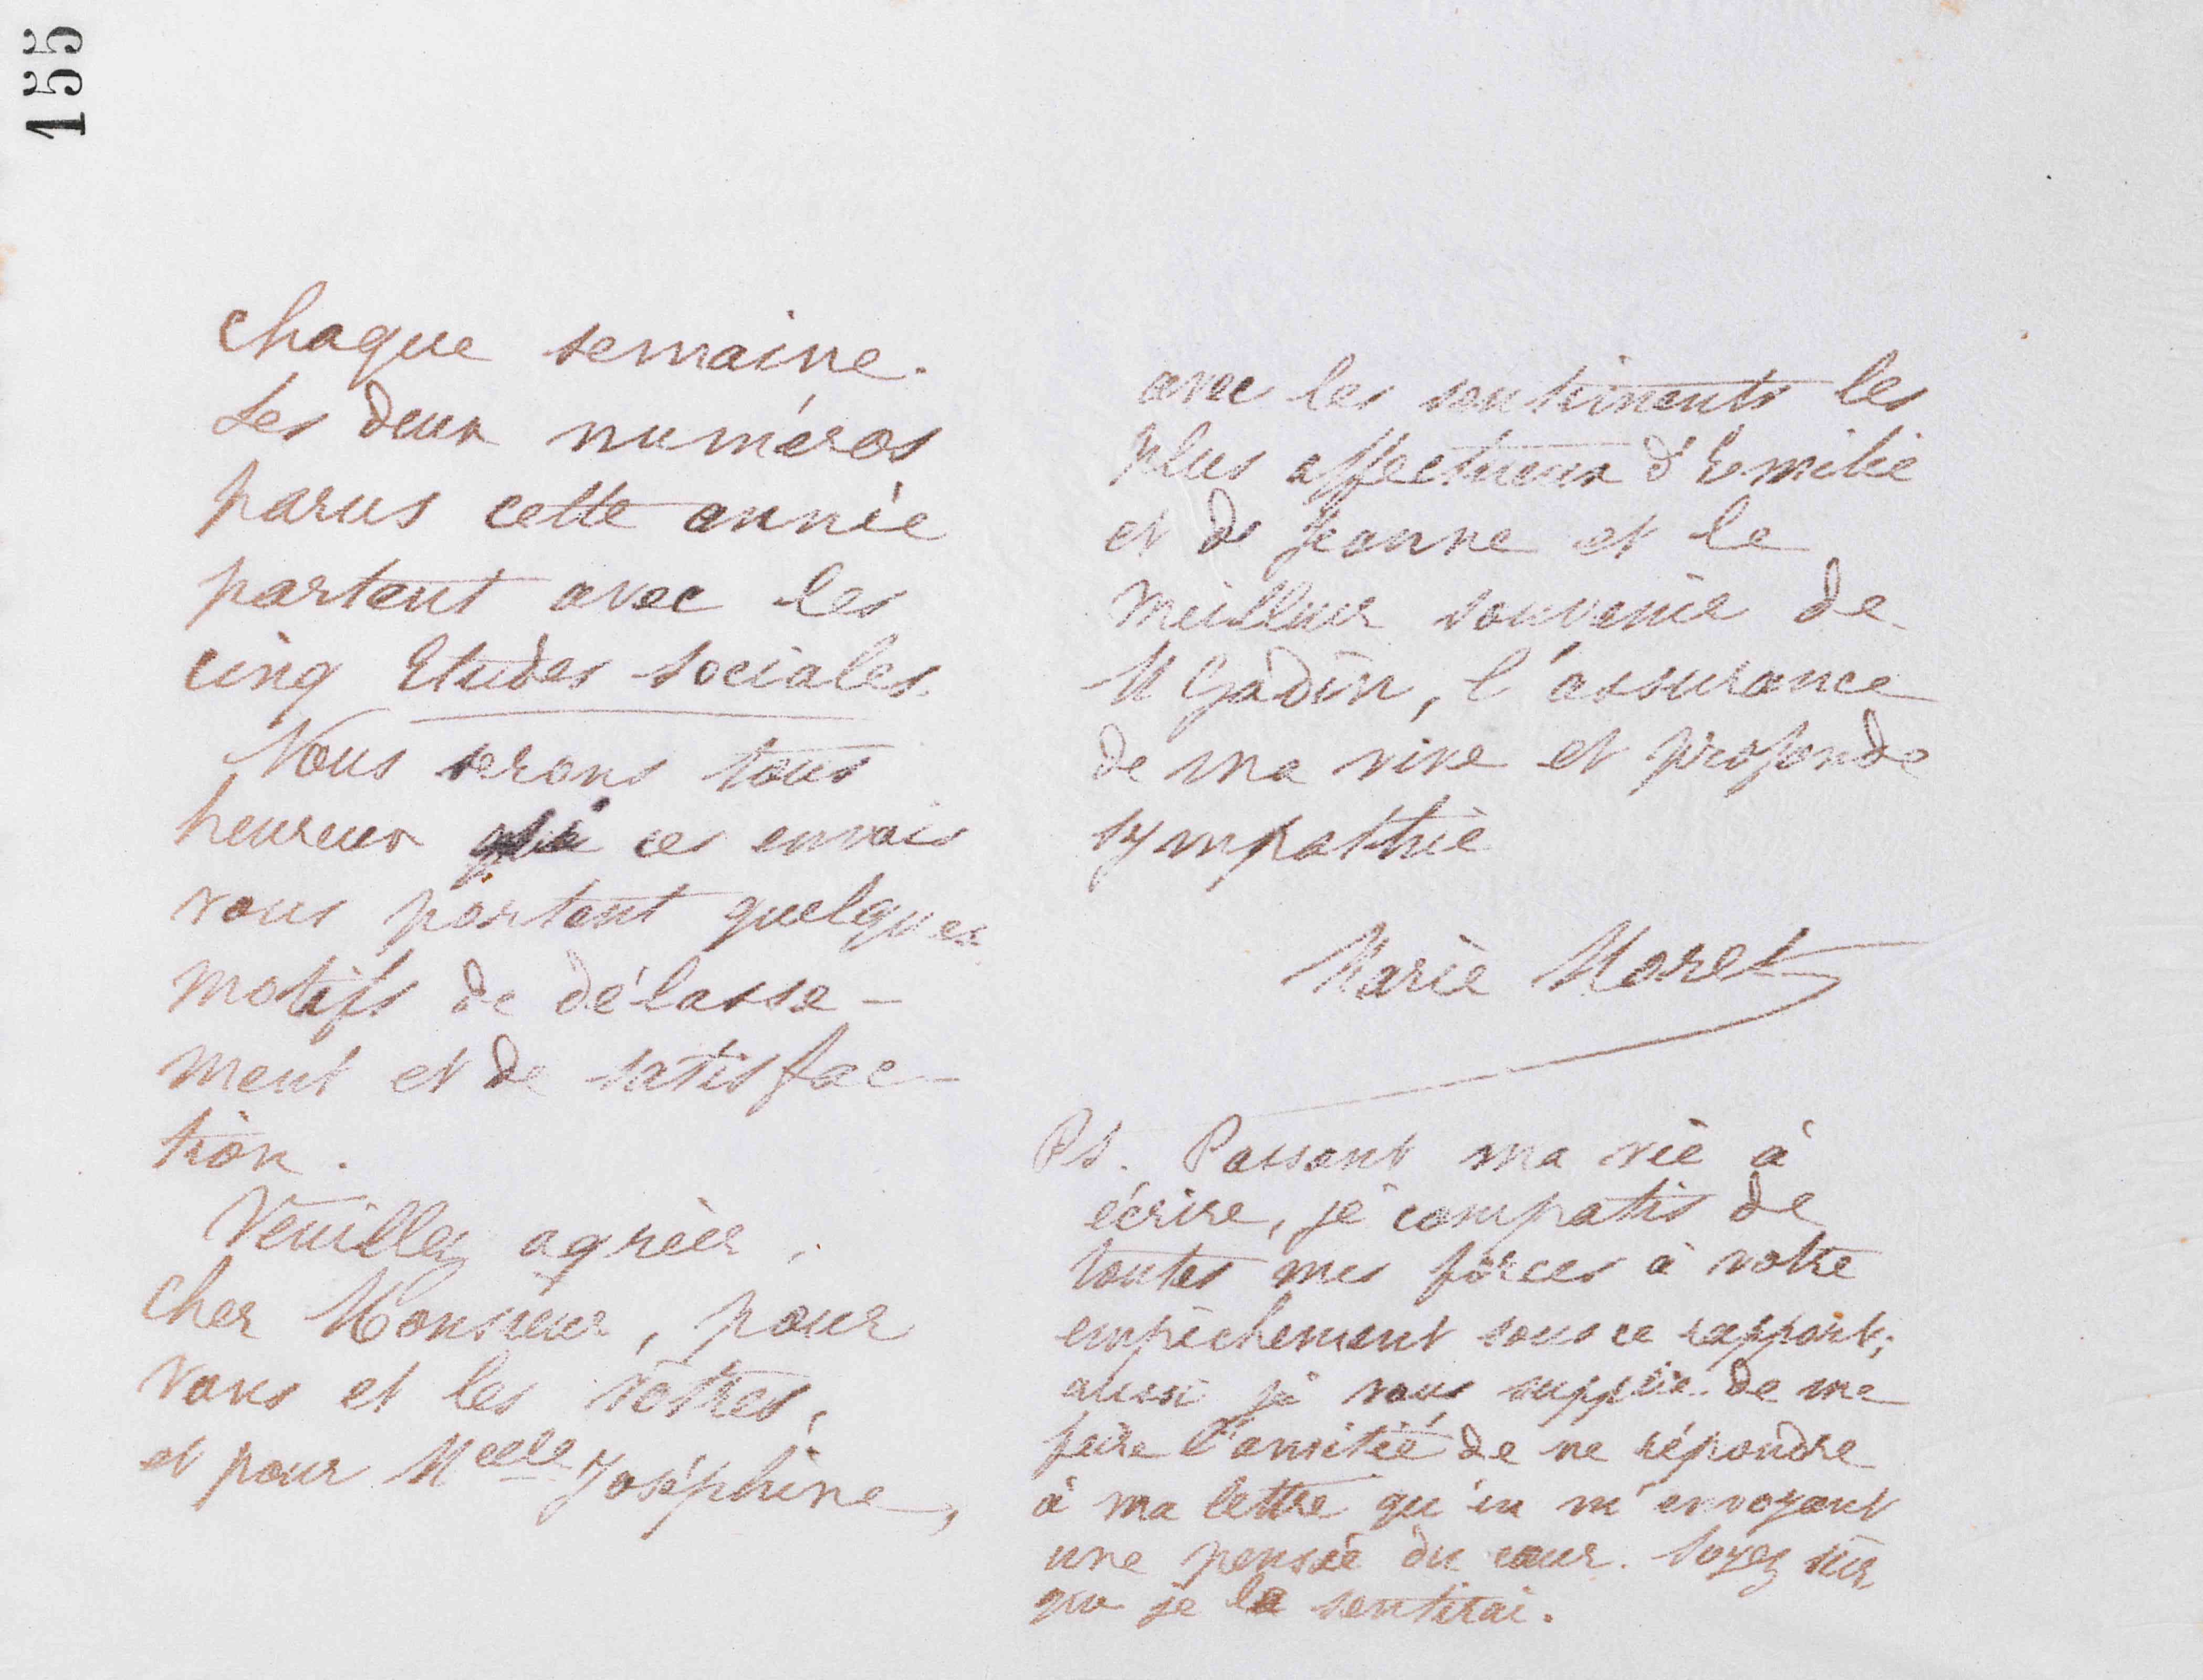 155
chaque semaine.
Les deux numéros
parus cette année
partent avec les
cinq Etudes sociales.
Nous serons tous
heureux si ces envois
vous portent quelques
motifs de délasse-
ment et de satisfac-
tion.
Veuillez agréer,
cher Monsieur, pour
vous et les vôtres,
et pour Melle Joséphine,
avec les sentiments les
plus affectueux d'Emilie
et de Jeanne et le
meilleur souvenir de
M Gâdin, l'assurance
de ma vive et profonde
sympathie
Marie Moret
Ps. Passant ma vie à
écrire, je compatis de
toutes mes forces à votre
empêchement sous ce rapport;
aussi je vous supplie de me
faire l'amitié de ne répondre
à ma lettre qu'en m'envoyant
une pensée du cœur. Soyez sûr
que je la sentirai.